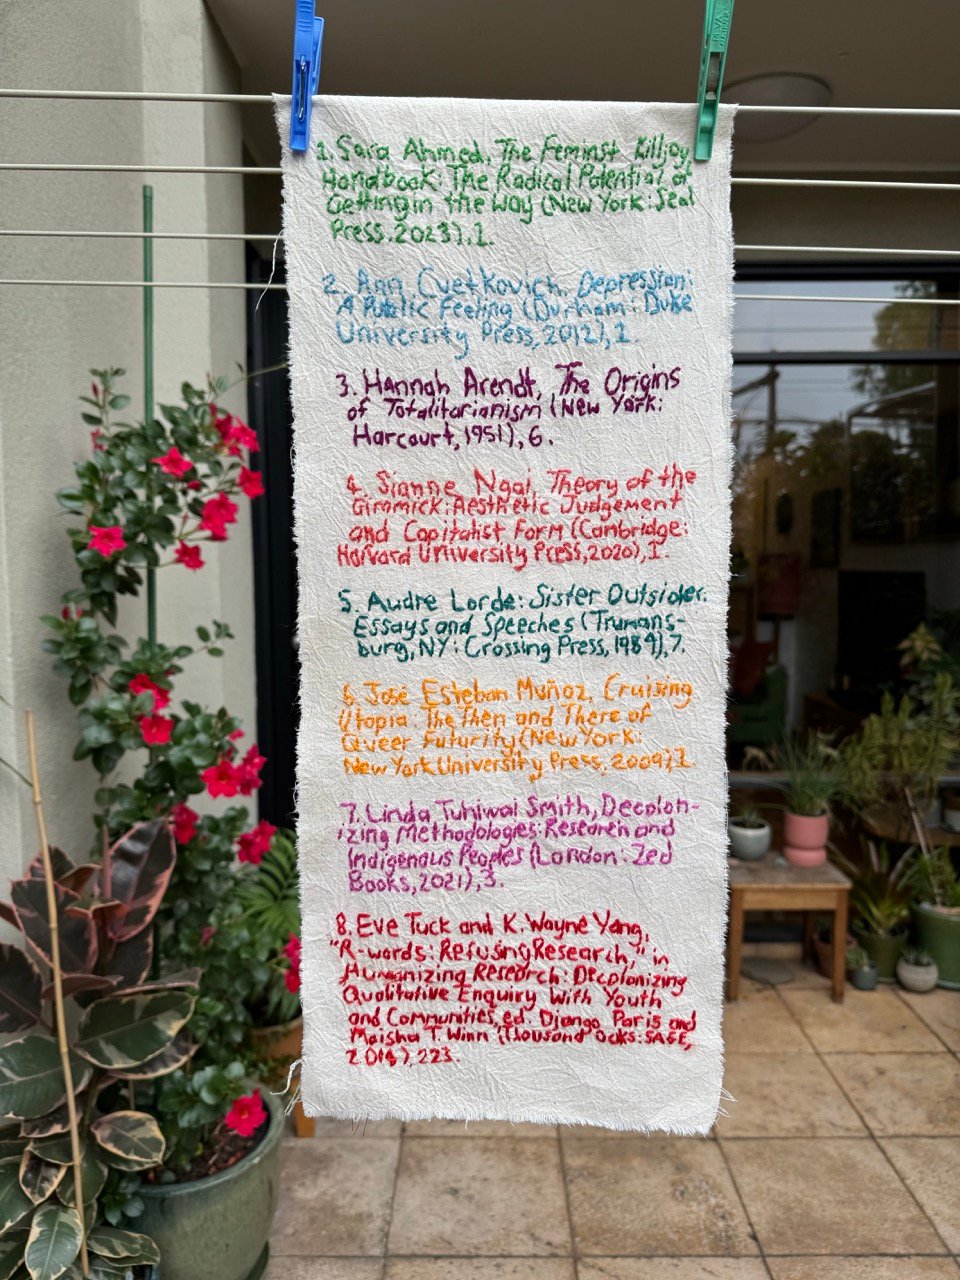 1. Sara Ahmed, The Feminst Killjoy
Handbook: The Radical Potential of
Getting in the Way (New York: Seal
Press. 2023), 1.
2. Ann Cvetkovich, Depression:
A Public Feeling (Durham: Duke
University Press, 2012), 2.
3. Hannah Arendt, The Origins
of Totalitarianism (New York:
Harcourt, 1951), 6.
4. Sianne Ngai, Theory of the
Gimmick: Aesthetic Judgement
and Capitalist Form (Cambridge:
Harvard University Press, 2020), 1.
5. Audre Lorde: Sister Outsider:
Essays and Speeches (Trumans-
burg, NY: Crossing Press, 1984), 7.
6. José Esteban Muñoz, Cruising
Utopia: The Then and There of
Queer Futurity (New York:
New York University Press, 2009), 1.
7. Linda Tuhiwai Smith, Decolon-
izing Methodologies: Research and
Indigenous Peoples (London: Zed
Books, 2021), 3.
8. Eve Tuck and K. Wayne Yang,
"R-words: Refusing Research," in
Humanizing Research: Decolonizing
Qualitative Enquiry With Youth
and Communities, ed Django Paris and
Maisha T. Winn (Thousand Oaks: SAGE,
2014), 223.